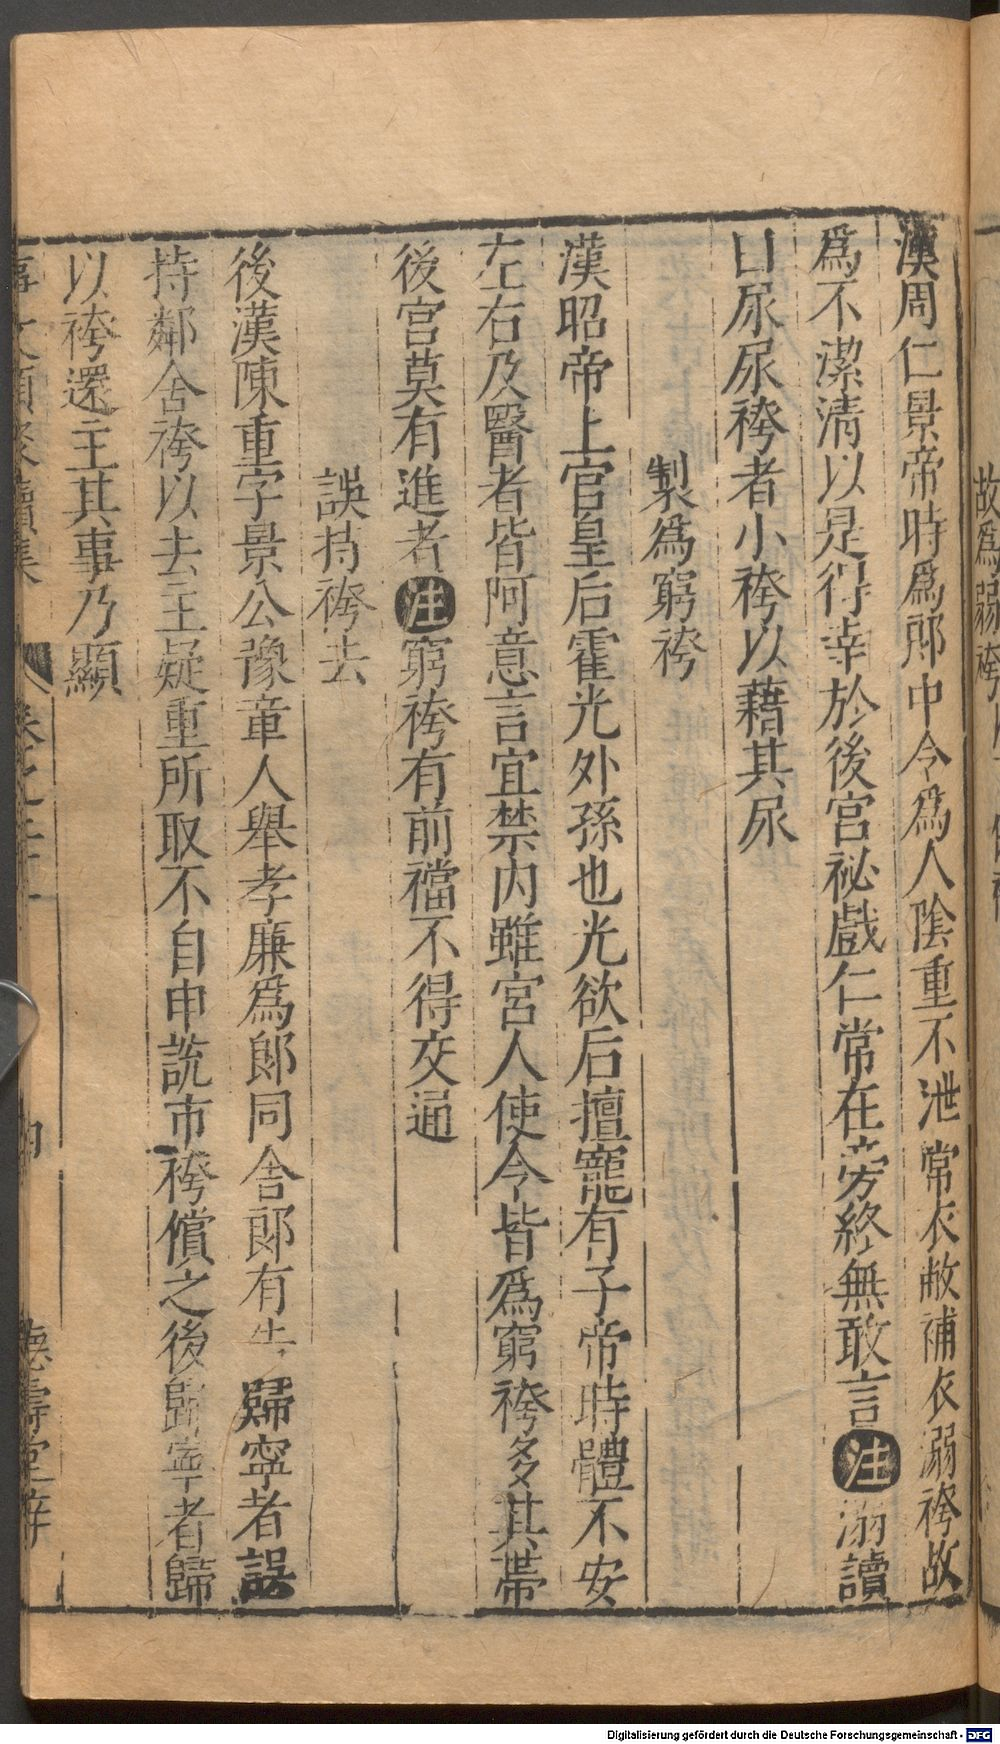 故爲溺袴
漢周仁景帝時爲郎中令爲人陰重不泄常衣敝補衣溺袴故
爲不潔清以是得幸於後宮祕戲仁常在旁終無敢言注溺讀
曰尿尿袴者小袴以藉其尿
製爲窮袴
漢昭帝上官皇后霍光外孫也光欲后擅寵有子帝時體不安
左右及醫者皆阿意言宜禁內雖宮人使令皆爲窮袴多其帶
後宮莫有進者注窮袴有前襠不得交通
誤持袴去
後漢陳重字景公豫章人舉孝廉爲郎同舍郎有告歸寧者誤
持鄰舍袴以去主疑重所取不自申説市袴償之後歸寧者歸
以袴還主其事乃顯
事文類聚續集 卷之二十 德壽堂梓
Digitalisierung gefördert durch die Deutsche Forschungsgemeinschaft - DFG